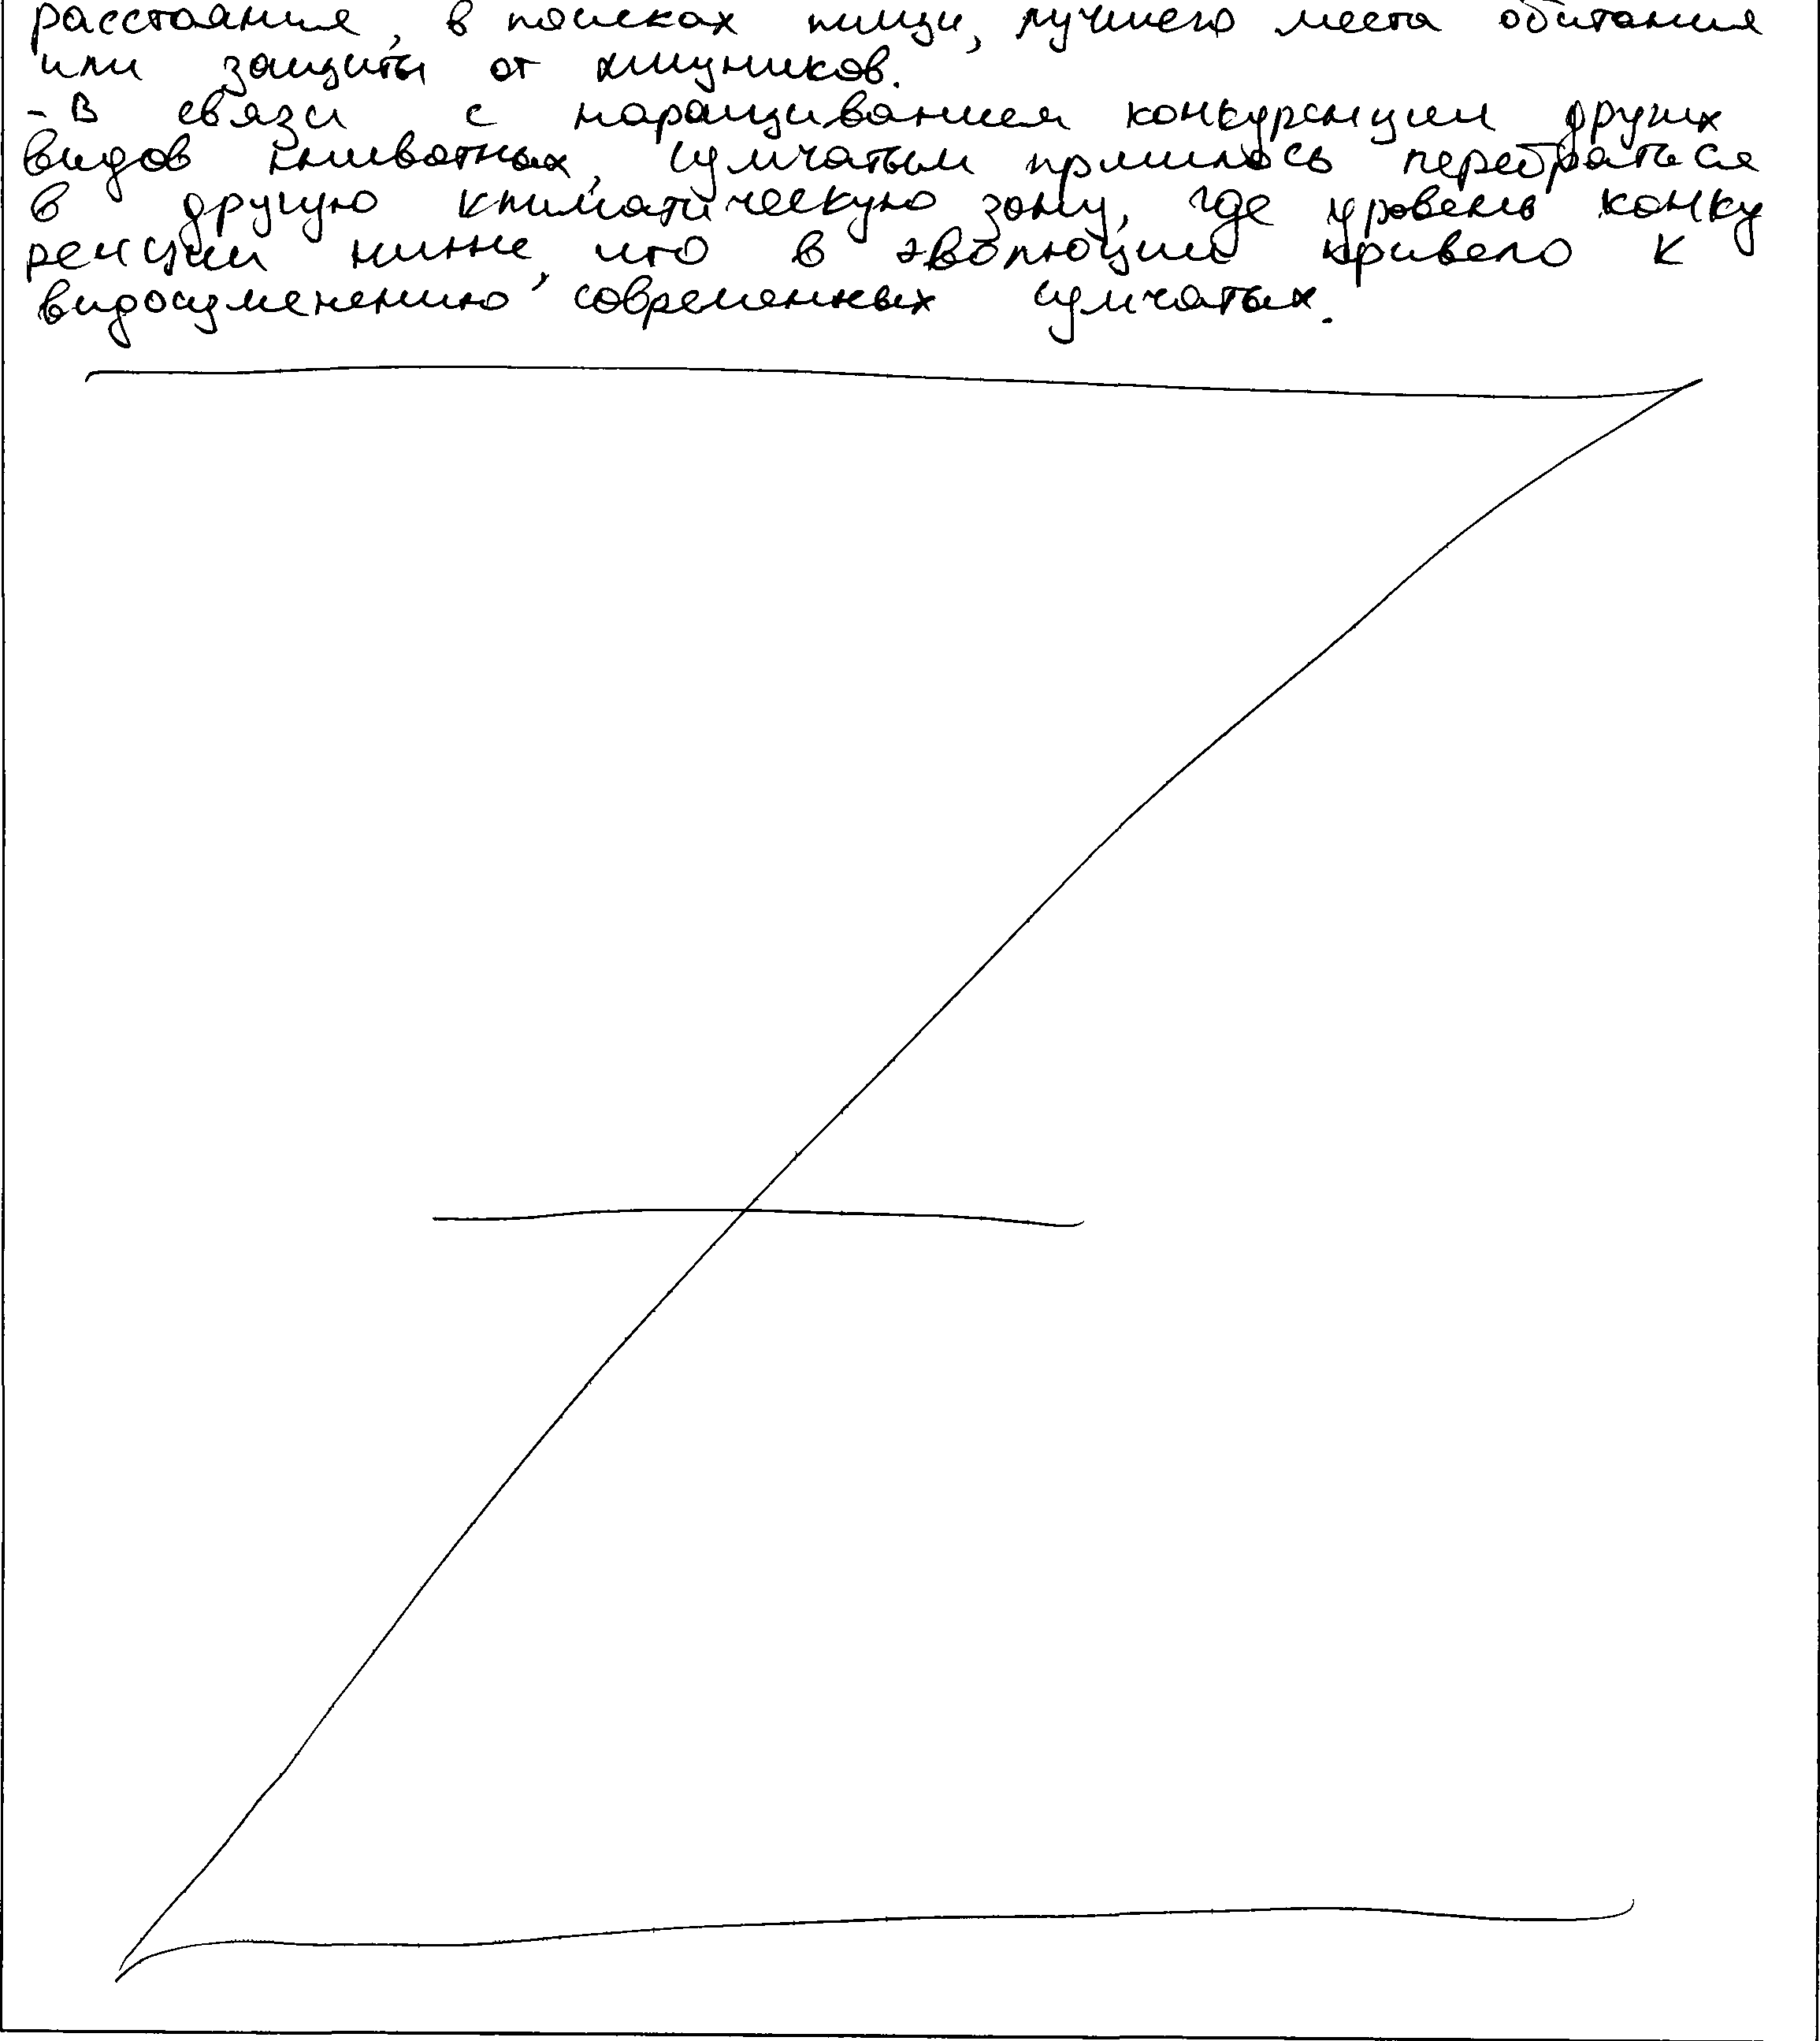 расстояния, в поисках пищи, лучшего места обитания
или защиты от хищников.
- В связи с наращиванием конкуренции других
видов животных, сумчатым пришлось перебраться
в другую климатическую зону, где уровень конку
ренции ниже, что в эволюции привело к
видоизменению современных сумчатых.